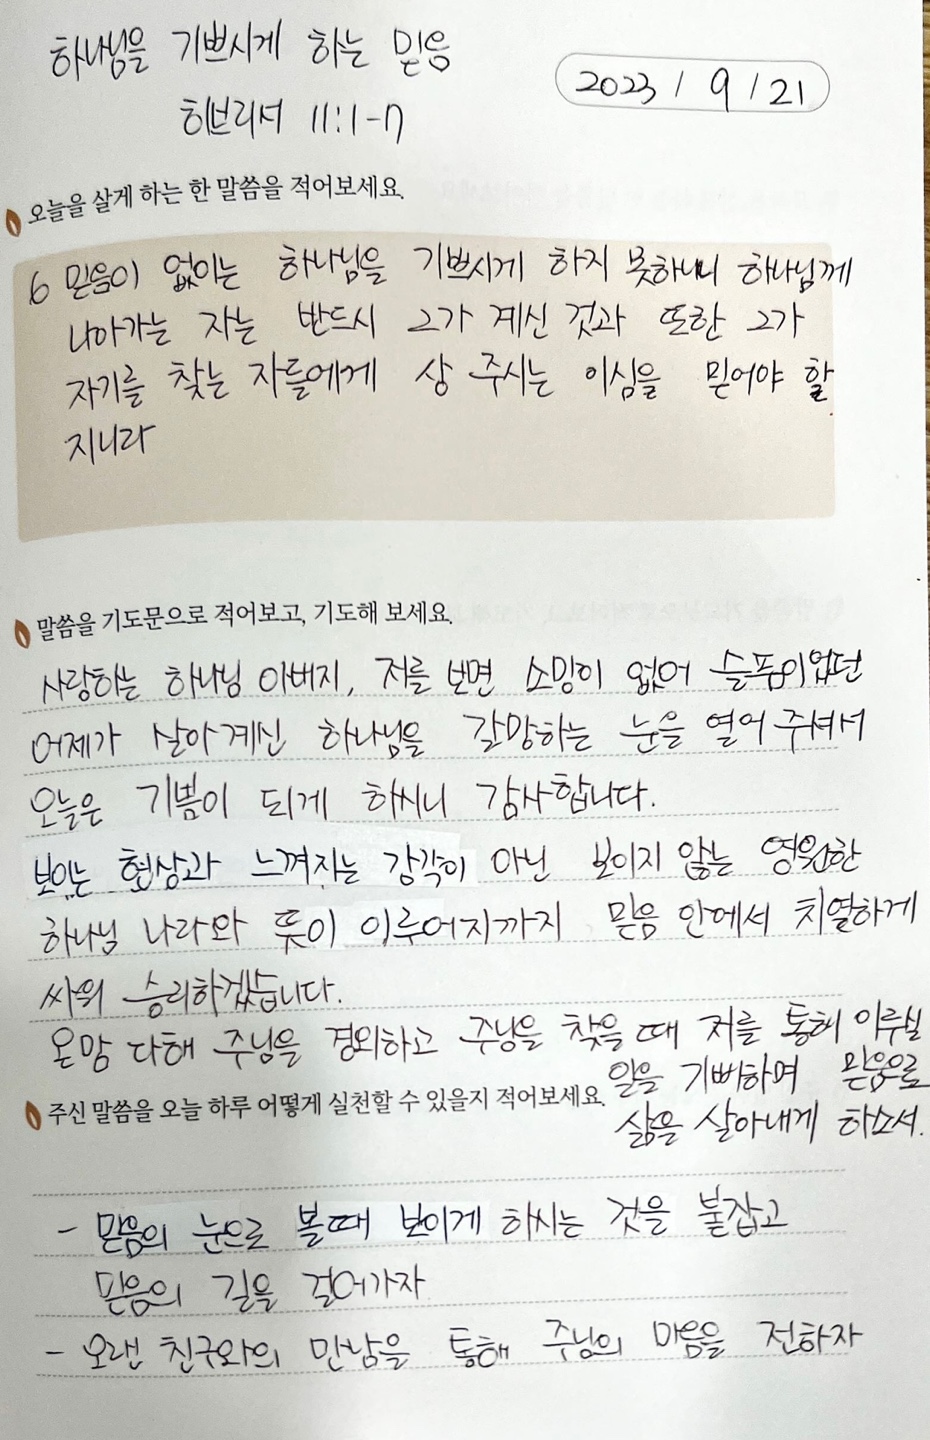 하나님을 기쁘시게 하는 믿음
히브리서 11:1-7
2023 / 9 / 21
오늘을 살게 하는 한 말씀을 적어보세요.
6 믿음이 없이는 하나님을 기쁘시게 하지 못하나니 하나님께
나아가는 자는 반드시 그가 계신 것과 또한 그가
자기를 찾는 자들에게 상 주시는 이심을 믿어야 할
지니라
말씀을 기도문으로 적어보고, 기도해 보세요.
사랑하는 하나님 아버지, 저를 보면 소망이 없어 슬픔이었던
어제가 살아계신 하나님을 갈망하는 눈을 열어 주셔서
오늘은 기쁨이 되게 하시니 감사합니다.
보이는 현상과 느껴지는 감각이 아닌 보이지 않는 영원한
하나님 나라와 뜻이 이루어지기까지 믿음 안에서 치열하게
싸워 승리하겠습니다.
온맘 다해 주님을 경외하고 주님을 찾을 때 저를 통해 이루실
일을 기뻐하며 믿음으로
삶을 살아내게 하소서.
주신 말씀을 오늘 하루 어떻게 실천할 수 있을지 적어보세요.
- 믿음의 눈으로 볼때 보이게 하시는 것을 붙잡고
믿음의 길을 걸어가자
- 오랜 친구와의 만남을 통해 주님의 마음을 전하자